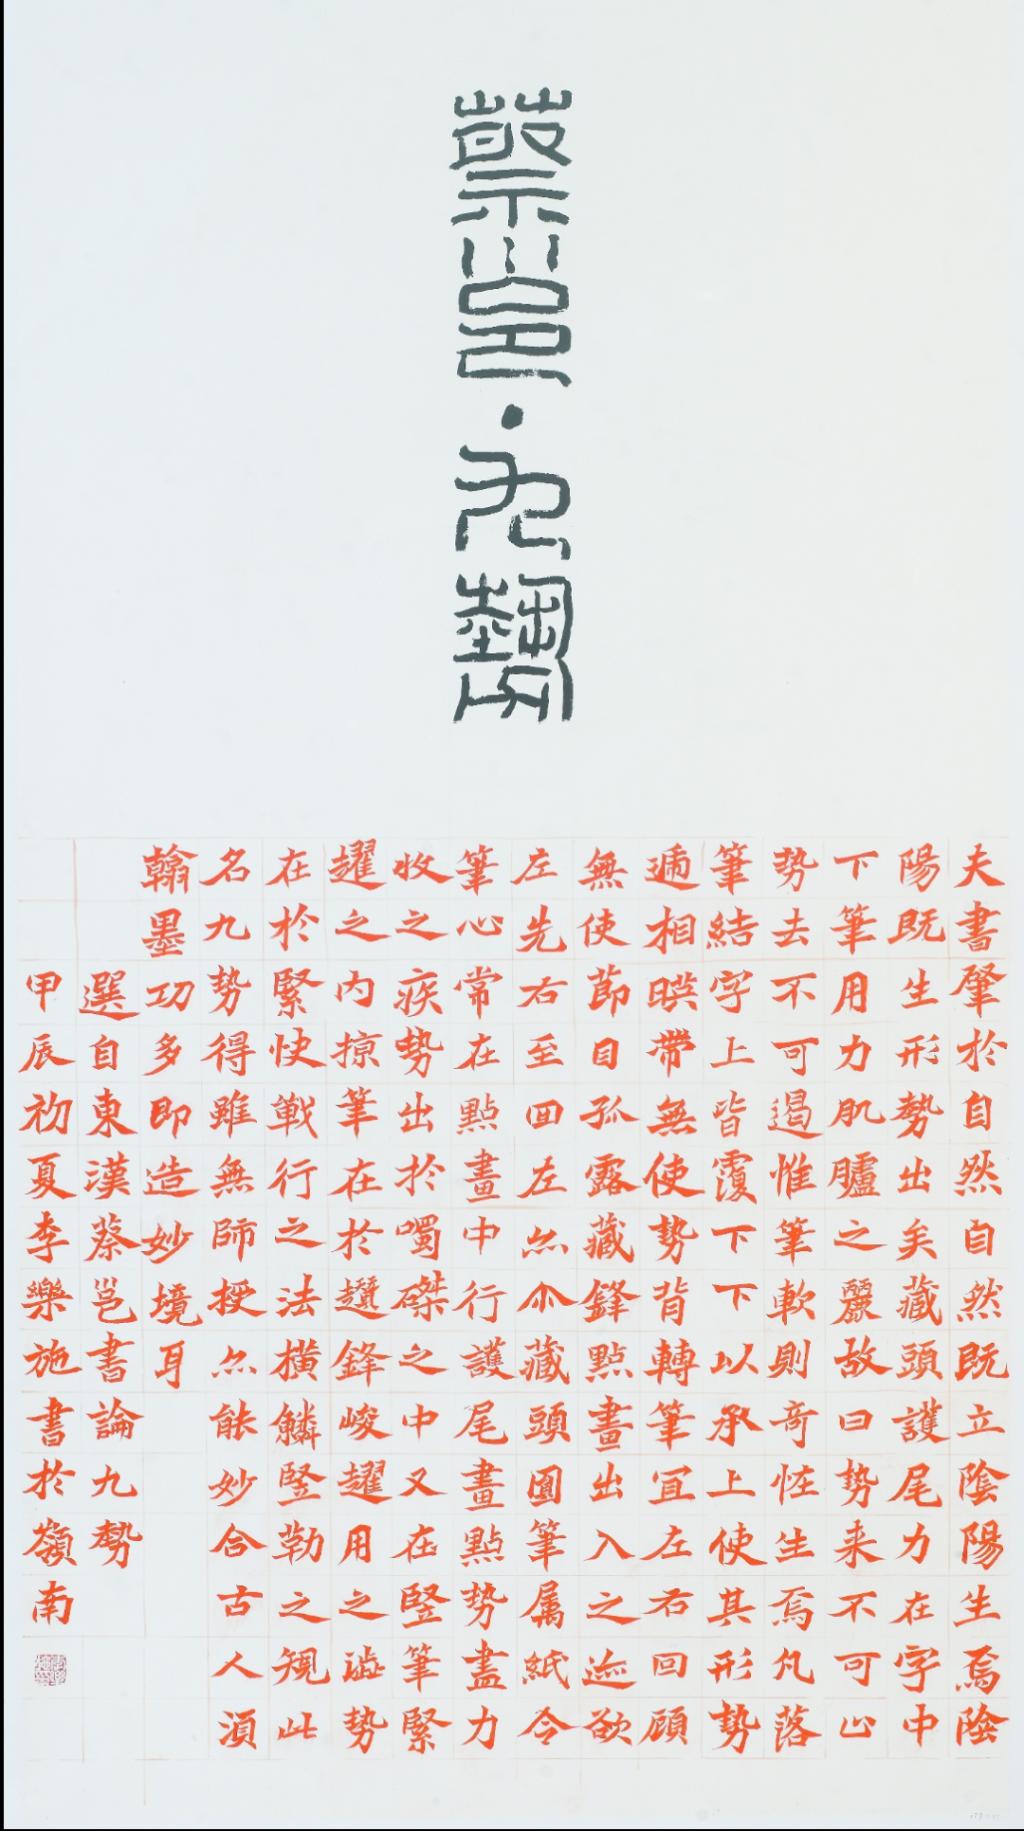 蔡邕·九勢
夫書肇於自然自然既立陰陽生焉陰
陽既生形勢出矣藏頭護尾力在字中
下筆用力肌膚之麗故曰勢来不可止
勢去不可遏惟筆軟則奇怪生焉凡落
筆結字上皆覆下下以承上使其形勢
遞相暎帶無使勢背轉筆宜左右回顧
無使節目孤露藏鋒點畫出入之迹欲
左先右至回左亦尒藏頭圓筆属紙令
筆心常在點畫中行護尾畫點勢盡力
收之疾勢出於啄磔之中又在竪筆緊
趯之內掠筆在於趲鋒峻趯用之澁勢
在於緊快戰行之法橫鱗竪勒之規此
名九勢得雖無師授亦能妙合古人湏
翰墨功多即造妙境耳
選自東漢蔡邕書論九勢
甲辰初夏李樂施書於嶺南